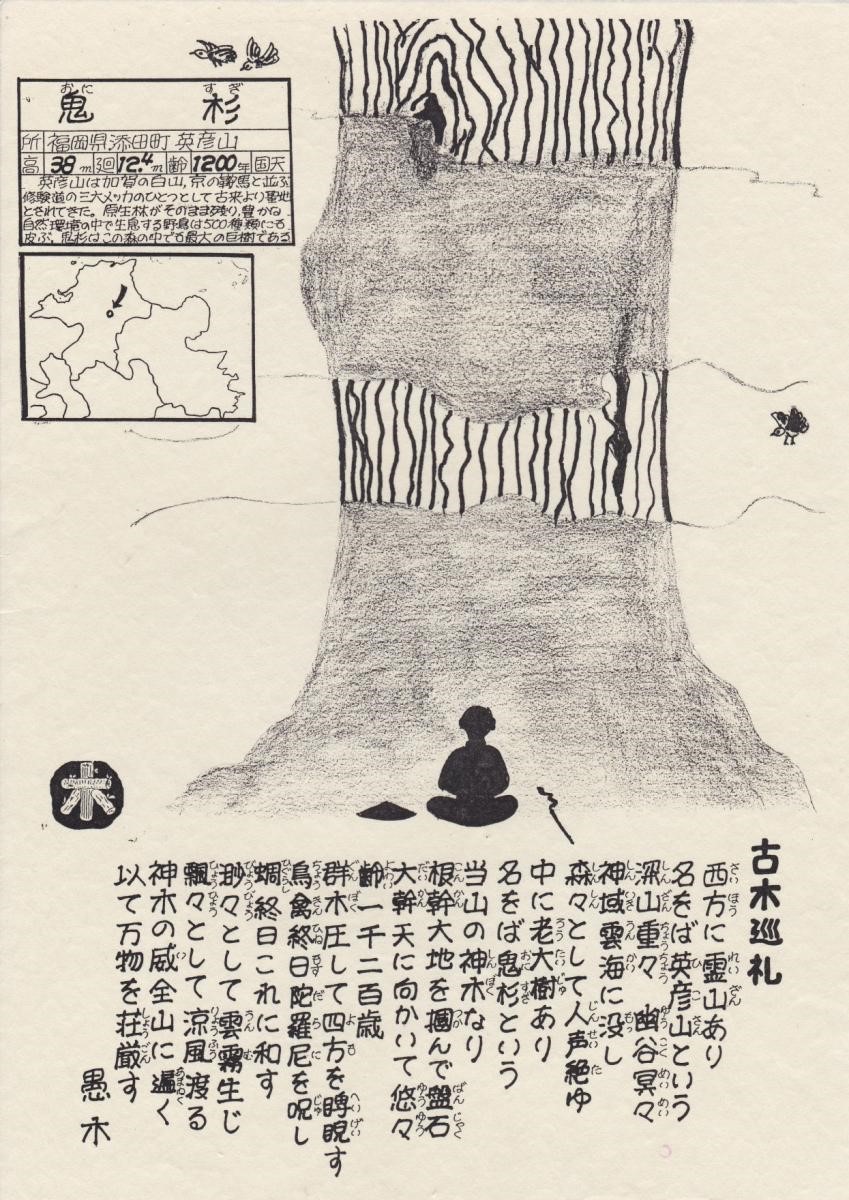 鬼杉
おに すぎ
所 福岡県添田町 英彦山
高 38m 廻 12.4m 齢 1200年 国天
英彦山は加賀の白山,京の鞍馬と並ぶ
修験道の三大メッカのひとつとして古来より聖地
とされてきた。原生林がそのまま残り,豊かな
自然環境の中で生息する野鳥は500種類にも
及ぶ。鬼杉はこの森の中でも最大の巨樹である
木
古木巡礼
西方に霊山あり
名をば英彦山という
深山重々 幽谷冥々
神域雲海に没し
森々として人声絶ゆ
中に老大樹あり
名をば鬼杉という
当山の神木なり
根幹大地を摑んで盤石
大幹天に向かいて悠々
齢一千二百歳
群木圧して四方を睥睨す
鳥禽終日陀羅尼を呪し
蜩終日これに和す
渺々として雲霧生じ
飄々として涼風渡る
神木の威全山に遍く
以て万物を荘厳す
愚木